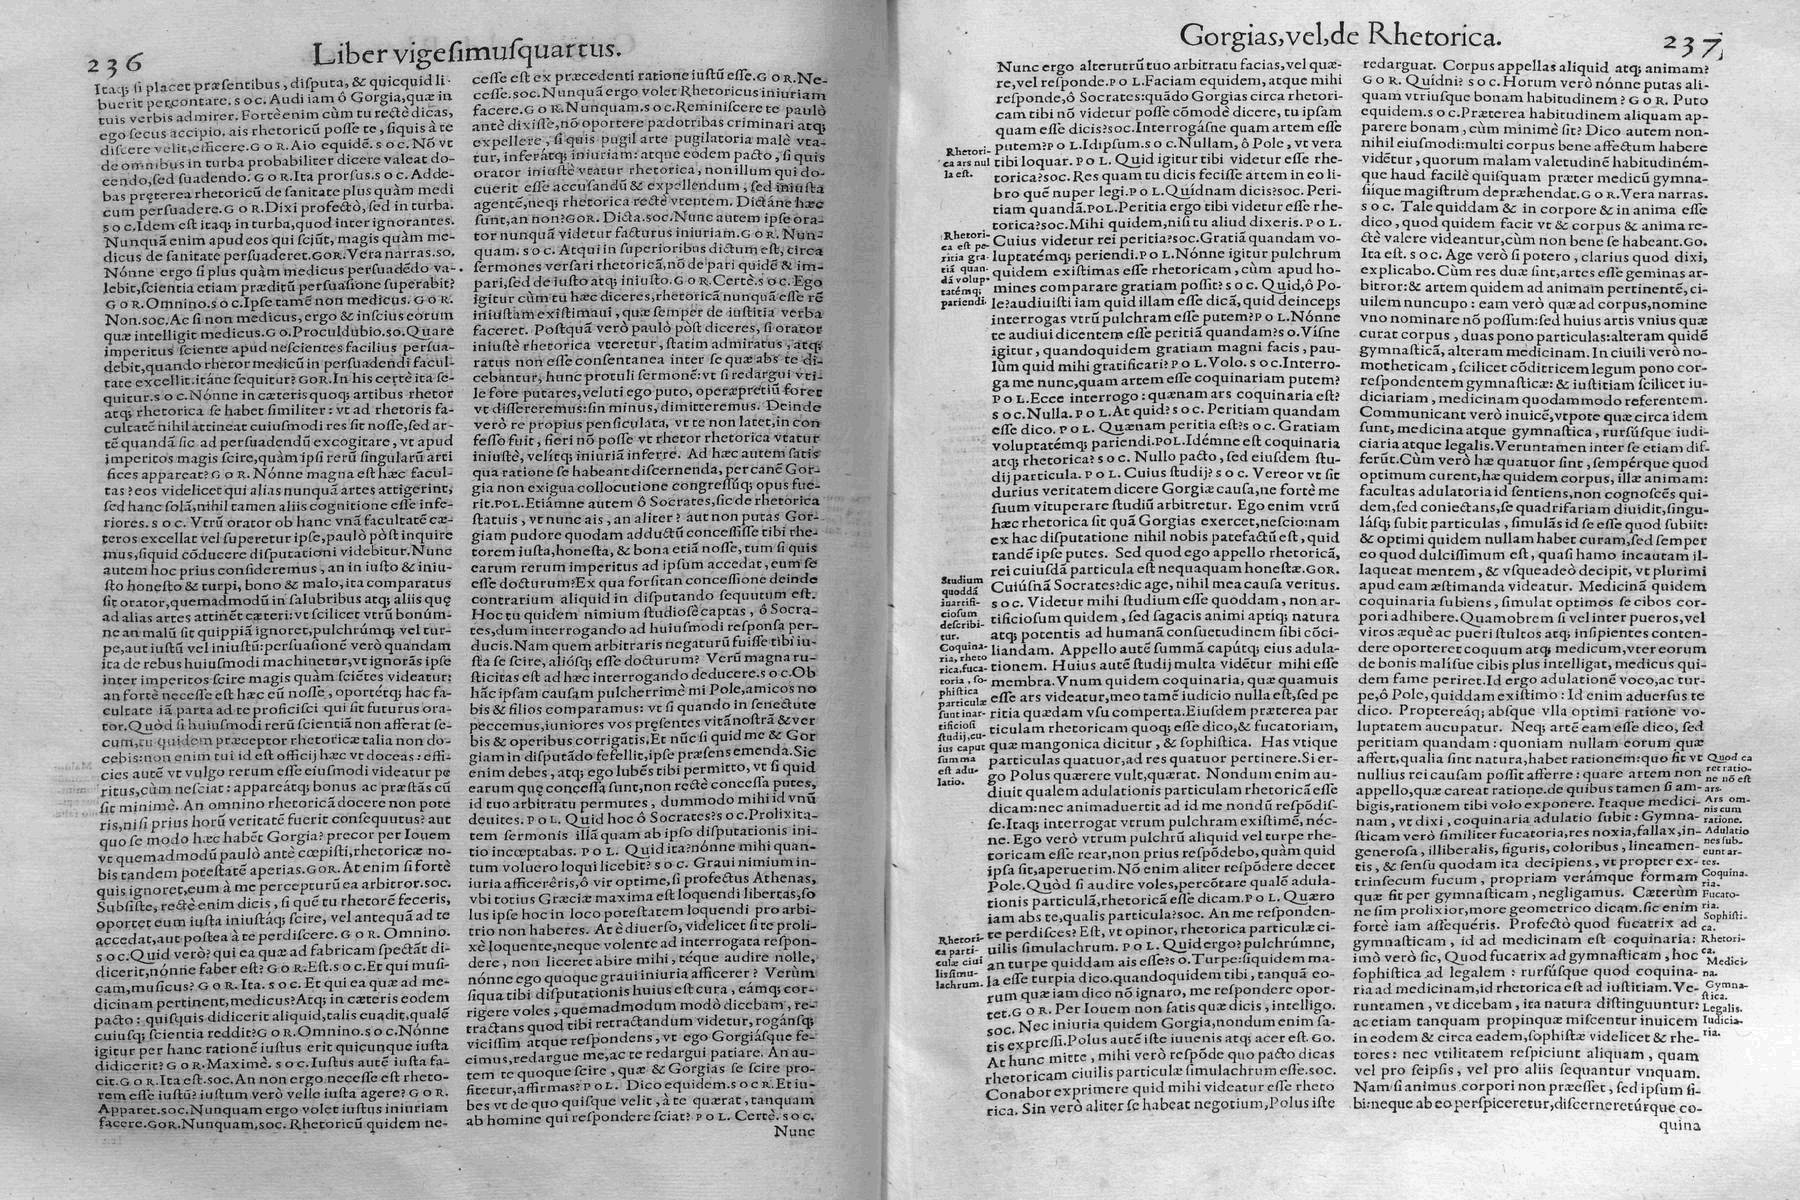 236
Liber vigesimusquartus.
Itaq; si placet præsentibus, disputa, & quicquid li-
buerit percontare. SOC. Audi iam ô Gorgia, quæ in
tuis verbis admirer. Fortè enim cùm tu rectè dicas,
ego secus accipio. ais rhetoricũ posse te, si quis à te
discere velit, efficere. GOR. Aio equidẽ. SOC. Nõ vt
de omnibus in turba probabiliter dicere valeat do-
cendo, sed suadendo. GOR. Ita prorsus. SOC. Adde-
bas pręterea rhetoricũ de sanitate plus quàm medi
cum persuadere. GOR. Dixi profectò, sed in turba.
SOC. Idem est itaq; in turba, quod inter ignorantes.
Nunquã enim apud eos qui sciũt, magis quàm me-
dicus de sanitate persuaderet. GOR. Vera narras. SO.
Nónne ergo si plus quàm medicus persuadẽdo va-
lebit, scientia etiam præditũ persuasione superabit?
GOR. Omnino. SOC. Ipse tamẽ non medicus. GOR.
Non. SOC. Ac si non medicus, ergo & inscius eorum
quæ intelligit medicus. GO. Proculdubio. SO. Quare
imperitus sciente apud nescientes facilius persua-
debit, quando rhetor medicũ in persuadendi facul-
tate excellit. itáne sequitur? GOR. In his certè ita se-
quitur. SOC. Nónne in cæteris quoq; artibus rhetor
atq; rhetorica se habet similiter: vt ad rhetoris fa-
cultatẽ nihil attineat cuiusmodi res sit nosse, sed ar-
tẽ quandã sic ad persuadendũ excogitare, vt apud
imperitos magis scire, quàm ipsi rerũ singularũ arti
fices appareat? GOR. Nónne magna est hæc facul-
tas? eos videlicet qui alias nunquã artes attigerint,
sed hanc solã, nihil tamen aliis cognitione esse infe-
riores. SOC. Vtrũ orator ob hanc vnã facultatẽ cæ-
teros excellat vel superetur ipse, paulò pòst inquire
mus, siquid cõducere disputationi videbitur. Nunc
autem hoc prius consideremus, an in iusto & iniu-
sto honesto & turpi, bono & malo, ita comparatus
sit orator, quemadmodũ in salubribus atq; aliis quę
ad alias artes attinẽt cæteri: vt scilicet vtrũ bonúm-
ne an malũ sit quippiã ignoret, pulchrúmq; vel tur-
pe, aut iustũ vel iniustũ: persuasionẽ verò quandam
ita de rebus huiusmodi machinetur, vt ignorãs ipse
inter imperitos scire magis quàm sciẽtes videatur:
an fortè necesse est hæc eũ nosse, oportétq; hac fa-
cultate iã parta ad te proficisci qui sit futurus ora-
tor. Quòd si huiusmodi rerũ scientiã non afferat se-
cum, tu quidem præceptor rhetoricæ talia non do-
cebis: non enim tui id est officij hæc vt doceas: effi-
cies autẽ vt vulgo rerum esse eiusmodi videatur pe
ritus, cùm nesciat: appareátq; bonus ac præstãs cũ
sit minimè. An omnino rhetoricã docere non pote
ris, nisi prius horũ veritatẽ fuerit consequutus? aut
quo se modo hæc habẽt Gorgia? precor per Iouem
vt quemadmodũ paulò antè cœpisti, rhetoricæ no-
bis tandem potestatẽ aperias. GOR. At enim si fortè
quis ignoret, eum à me percepturũ ea arbitror. SOC.
Subsiste, rectè enim dicis, si quẽ tu rhetorẽ feceris,
oportet eum iusta iniustáq; scire, vel antequã ad te
accedat, aut postea à te perdiscere. GOR. Omnino.
SOC. Quid verò? qui ea quæ ad fabricam spectãt di-
dicerit, nónne faber est? GOR. Est. SOC. Et qui musi-
cam, musicus? GOR. Ita. SOC. Et qui ea quæ ad me-
dicinam pertinent, medicus? Atq; in cæteris eodem
pacto: quisquis didicerit aliquid, talis euadit, qualẽ
cuiusq; scientia reddit? GOR. Omnino. SOC. Nónne
igitur per hanc rationẽ iustus erit quicunque iusta
didicerit? GOR. Maximè. SOC. Iustus autẽ iusta fa-
cit. GOR. Ita est. SOC. An non ergo necesse est rheto-
rem esse iustũ? iustum verò velle iusta agere? GOR.
Apparet. SOC. Nunquam ergo volet iustus iniuriam
facere. GOR. Nunquam, SOC. Rhetoricũ quidem ne-
cesse est ex præcedenti ratione iustũ esse. GOR. Ne-
cesse. SOC. Nunquã ergo volet Rhetoricus iniuriam
facere. GOR. Nunquam. SOC. Reminiscere te paulò
antè dixisse, nõ oportere pædotribas criminari atq;
expellere, si quis pugil arte pugilatoria malè vta-
tur, inferátq; iniuriam: atque eodem pacto, si quis
orator iniustè vtatur rhetorica, non illum qui do-
cuerit esse accusandũ & expellendum, sed iniusta
agentẽ, neq; rhetorica rectè vtentem. Dictáne hæc
sunt, an non? GOR. Dicta. SOC. Nunc autem ipse ora-
tor nunquã videtur facturus iniuriam. GOR. Nun-
quam. SOC. Atqui in superioribus dictum est, circa
sermones versari rhetoricã, nõ de pari quidẽ & im-
pari, sed de iusto atq; iniusto. GOR. Certè. SOC. Ego
igitur cùm tu hæc diceres, rhetoricã nunquã esse rẽ
iniustam existimaui, quæ semper de iustitia verba
faceret. Postquã verò paulò pòst diceres, si orator
iniustè rhetorica vteretur, statim admiratus, atq;
ratus non esse consentanea inter se quæ abs te di-
cebantur, hunc protuli sermonẽ: vt si redargui vti-
le fore putares, veluti ego puto, operæpretiũ foret
vt dissereremus: sin minus, dimitteremus. Deinde
verò re propius pensiculata, vt te non latet, in con
fesso fuit, fieri nõ posse vt rhetor rhetorica vtatur
iniustè, velítq; iniuriã inferre. Ad hæc autem satis
qua ratione se habeant discernenda, per canẽ Gor-
gia non exigua collocutione congressúq; opus fue-
rit. POL. Etiámne autem ô Socrates, sic de rhetorica
statuis, vt nunc ais, an aliter? aut non putas Gor-
giam pudore quodam adductũ concessisse tibi rhe-
torem iusta, honesta, & bona etiã nosse, tum si quis
earum rerum imperitus ad ipsum accedat, eum se
esse docturum? Ex qua forsitan concessione deinde
contrarium aliquid in disputando sequutum est.
Hoc tu quidem nimium studiosè captas, ô Socra-
tes, dum interrogando ad huiusmodi responsa per-
ducis. Nam quem arbitraris negaturũ fuisse tibi iu-
sta se scire, aliósq; esse docturum? Verũ magna ru-
sticitas est ad hæc interrogando deducere. SOC. Ob
hãc ipsam causam pulcherrimè mi Pole, amicos no
bis & filios comparamus: vt si quando in senectute
peccemus, iuniores vos pręsentes vitã nostrã & ver
bis & operibus corrigatis. Et nũc si quid me & Gor
giam in disputãdo fefellit, ipse præsens emenda. Sic
enim debes, atq; ego lubẽs tibi permitto, vt si quid
earum quę concessa sunt, non rectè concessa putes,
id tuo arbitratu permutes, dummodo mihi id vnũ
deuites. POL. Quid hoc ô Socrates? SOC. Prolixita-
tem sermonis illã quam ab ipso disputationis ini-
tio incœptabas. POL. Quid ita? nónne mihi quan-
tum voluero loqui licebit? SOC. Graui nimium in-
iuria afficerêris, ô vir optime, si profectus Athenas,
vbi totius Græciæ maxima est loquendi libertas, so
lus ipse hoc in loco potestatem loquendi pro arbi-
trio non haberes. At è diuerso, videlicet si te proli-
xè loquente, neque volente ad interrogata respon-
dere, non liceret abire mihi, téque audire nolle,
nónne ego quoque graui iniuria afficerer? Verùm
si qua tibi disputationis huius est cura, eámq; cor-
rigere voles, quemadmodum modò dicebam, re-
tractans quod tibi retractandum videtur, rogánsq;
vicissim atque respondens, vt ego Gorgiásque fe-
cimus, redargue me, ac te redargui patiare. An au-
tem te quoque scire, quæ & Gorgias se scire pro-
fitetur, affirmas? POL. Dico equidem. SOCR. Et iu-
bes vt de quo quisque velit, à te quærat, tanquam
ab homine qui respondere sciat? POL. Certè. SOC.
Nunc
Gorgias, vel, de Rhetorica.
237
Nunc ergo alterutrũ tuo arbitratu facias, vel quæ-
re, vel responde. POL. Faciam equidem, atque mihi
responde, ô Socrates: quãdo Gorgias circa rhetori-
cam tibi nõ videtur posse cõmodè dicere, tu ipsam
quam esse dicis? SOC. Interrogásne quam artem esse
putem? POL. Id ipsum. SOC. Nullam, ô Pole, vt vera
tibi loquar. POL. Quid igitur tibi videtur esse rhe-
torica? SOC. Res quam tu dicis fecisse artem in eo li-
bro quẽ nuper legi. POL. Quídnam dicis? SOC. Peri-
tiam quandã. POL. Peritia ergo tibi videtur esse rhe-
torica? SOC. Mihi quidem, nisi tu aliud dixeris. POL.
Cuius videtur rei peritia? SOC. Gratiã quandam vo-
luptatémq; periendi. POL. Nónne igitur pulchrum
quidem existimas esse rhetoricam, cùm apud ho-
mines comparare gratiam possit? SOC. Quid, ô Po-
le? audiuisti iam quid illam esse dicã, quod deinceps
interrogas vtrũ pulchram esse putem? POL. Nónne
te audiui dicentem esse peritiã quandam? SO. Visne
igitur, quandoquidem gratiam magni facis, pau-
lùm quid mihi gratificari? POL. Volo. SOC. Interro-
ga me nunc, quam artem esse coquinariam putem?
POL. Ecce interrogo: quænam ars coquinaria est?
SOC. Nulla. POL. At quid? SOC. Peritiam quandam
esse dico. POL. Quænam peritia est? SOC. Gratiam
voluptatémq; pariendi. POL. Idémne est coquinaria
atq; rhetorica? SOC. Nullo pacto, sed eiusdem stu-
dij particula. POL. Cuius studij? SOC. Vereor vt sit
durius veritatem dicere Gorgiæ causa, ne fortè me
suum vituperare studiũ arbitretur. Ego enim vtrũ
hæc rhetorica sit quã Gorgias exercet, nescio: nam
ex hac disputatione nihil nobis patefactũ est, quid
tandẽ ipse putes. Sed quod ego appello rhetoricã,
rei cuiusdã particula est nequaquam honestæ. GOR.
Cuiúsnã Socrates? dic age, nihil mea causa veritus.
SOC. Videtur mihi studium esse quoddam, non ar-
tificiosum quidem, sed sagacis animi aptiq; natura
atq; potentis ad humanã consuetudinem sibi cõci-
liandam. Appello autẽ summã capútq; eius adula-
tionem. Huius autẽ studij multa vidẽtur mihi esse
membra. Vnum quidem coquinaria, quæ quamuis
esse ars videatur, meo tamẽ iudicio nulla est, sed pe
ritia quædam vsu comperta. Eiusdem præterea par
ticulam rhetoricam quoq; esse dico, & fucatoriam,
quæ mangonica dicitur, & sophistica. Has vtique
particulas quatuor, ad res quatuor pertinere. Si er-
go Polus quærere vult, quærat. Nondum enim au-
diuit qualem adulationis particulam rhetoricã esse
dicam: nec animaduertit ad id me nondũ respõdis-
se. Itaq; interrogat vtrum pulchram existimẽ, néc-
ne. Ego verò vtrum pulchrũ aliquid vel turpe rhe-
toricam esse rear, non prius respõdebo, quàm quid
ipsa sit, aperuerim. Nõ enim aliter respõdere decet
Pole. Quòd si audire voles, percõtare qualẽ adula-
tionis particulã, rhetoricã esse dicam. POL. Quæro
iam abs te, qualis particula? SOC. An me responden-
te perdisces? Est, vt opinor, rhetorica particulæ ci-
uilis simulachrum. POL. Quid ergo? pulchrúmne,
an turpe quiddam ais esse? SO. Turpe: siquidem ma-
la esse turpia dico. quandoquidem tibi, tanquã eo-
rum quæ iam dico nõ ignaro, me respondere opor-
tet. GOR. Per Iouem non satis quæ dicis, intelligo.
SOC. Nec iniuria quidem Gorgia, nondum enim sa-
tis expressi. Polus autẽ iste iuuenis atq; acer est. GO.
At hunc mitte, mihi verò respõde quo pacto dicas
rhetoricam ciuilis particulæ simulachrum esse. SOC.
Conabor exprimere quid mihi videatur esse rheto
rica. Sin verò aliter se habeat negotium, Polus iste
Rhetori-
ca ars nul
la est.
Rhetori-
ca est pe-
ritia gra-
tiã quan-
dã volup-
tatémq;
pariendi.
Studium
quoddã
inartifi-
ciosum
describi-
tur.
Coquina-
ria, rheto
rica, fuca-
toria, so-
phistica
particulæ
sunt inar-
tificiosi
studij, cu-
ius caput
summa
est adu-
latio.
Rhetori-
ca parti-
culæ ciui
lis simu-
lachrum.
redarguat. Corpus appellas aliquid atq; animam?
GOR. Quidni? SOC. Horum verò nónne putas ali-
quam vtriusque bonam habitudinem? GOR. Puto
equidem. SOC. Præterea habitudinem aliquam ap-
parere bonam, cùm minimè sit? Dico autem non-
nihil eiusmodi: multi corpus bene affectum habere
vidẽtur, quorum malam valetudinẽ habitudiném-
que haud facilè quisquam præter medicũ gymna-
siíque magistrum depræhendat. GOR. Vera narras.
SOC. Tale quiddam & in corpore & in anima esse
dico, quod quidem facit vt & corpus & anima re-
ctè valere videantur, cùm non bene se habeant. GO.
Ita est. SOC. Age verò si potero, clarius quod dixi,
explicabo. Cùm res duæ sint, artes esse geminas ar-
bitror: & artem quidem ad animam pertinentẽ, ci-
uilem nuncupo: eam verò quæ ad corpus, nomine
vno nominare nõ possum: sed huius artis vnius quæ
curat corpus, duas pono particulas: alteram quidẽ
gymnasticã, alteram medicinam. In ciuili verò no-
motheticam, scilicet cõditricem legum pono cor-
respondentem gymnasticæ: & iustitiam scilicet iu-
diciariam, medicinam quodammodo referentem.
Communicant verò inuicẽ, vtpote quæ circa idem
sunt, medicina atque gymnastica, rursúsque iudi-
ciaria atque legalis. Veruntamen inter se etiam dif-
ferũt. Cùm verò hæ quatuor sint, sempérque quod
optimum curent, hæ quidem corpus, illæ animam:
facultas adulatoria id sentiens, non cognoscẽs qui-
dem, sed coniectans, se quadrifariam diuidit, singu-
lásq; subit particulas, simulãs id se esse quod subiit:
& optimi quidem nullam habet curam, sed semper
eo quod dulcissimum est, quasi hamo incautam il-
laqueat mentem, & vsqueadeò decipit, vt plurimi
apud eam æstimanda videatur. Medicinã quidem
coquinaria subiens, simulat optimos se cibos cor-
pori adhibere. Quamobrem si vel inter pueros, vel
viros æquè ac pueri stultos atq; insipientes conten-
dere oporteret coquum atq; medicum, vter eorum
de bonis malísue cibis plus intelligat, medicus qui-
dem fame periret. Id ergo adulationẽ voco, ac tur-
pe, ô Pole, quiddam existimo: Id enim aduersus te
dico. Proptereáq; absque vlla optimi ratione vo-
luptatem aucupatur. Neq; artẽ eam esse dico, sed
peritiam quandam: quoniam nullam eorum quæ
affert, qualia sint natura, habet rationem: quo fit vt
nullius rei causam possit afferre: quare artem non
appello, quæ careat ratione. de quibus tamen si am-
bigis, rationem tibi volo exponere. Itaque medici-
nam, vt dixi, coquinaria adulatio subit: Gymna-
sticam verò similiter fucatoria, res noxia, fallax, in-
generosa, illiberalis, figuris, coloribus, lineamen-
tis, & sensu quodam ita decipiens, vt propter ex-
trinsecum fucum, propriam verámque formam
quæ fit per gymnasticam, negligamus. Cæterùm
ne sim prolixior, more geometrico dicam. sic enim
fortè iam assequéris. Profectò quod fucatrix ad
gymnasticam, id ad medicinam est coquinaria:
imò verò sic, Quod fucatrix ad gymnasticam, hoc
sophistica ad legalem: rursúsque quod coquina-
ria ad medicinam, id rhetorica est ad iustitiam. Ve-
runtamen, vt dicebam, ita natura distinguuntur:
ac etiam tanquam propinquæ miscentur inuicem
in eodem & circa eadem, sophistæ videlicet & rhe-
tores: nec vtilitatem respiciunt aliquam, quam
vel pro seipsis, vel pro aliis sequantur vnquam.
Nam si animus corpori non præesset, sed ipsum si-
bi: neque ab eo perspiceretur, discerneretúrque co-
quina
Quod ca
ret ratio-
ne nõ est
ars.
Ars om-
nis cum
ratione.
Adulatio
nes sub-
eunt ar-
tes.
Coquina-
ria.
Fucato-
ria.
Sophisti-
ca.
Rhetori-
ca.
Medici-
na.
Gymna-
stica.
Legalis.
Iudicia-
ria.